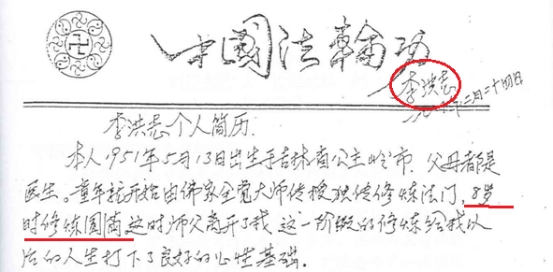 中國法輪功
李洪志
李洪志个人简历.
本人1951年5月13日出生于吉林省公主岭市.父母都是
医生。童年就开始由佛家全觉大师传授独传修炼法门,8岁
时修炼圆满这时师父离开了我.这一阶段的修炼给我以
后的人生打下了良好的心性基础.